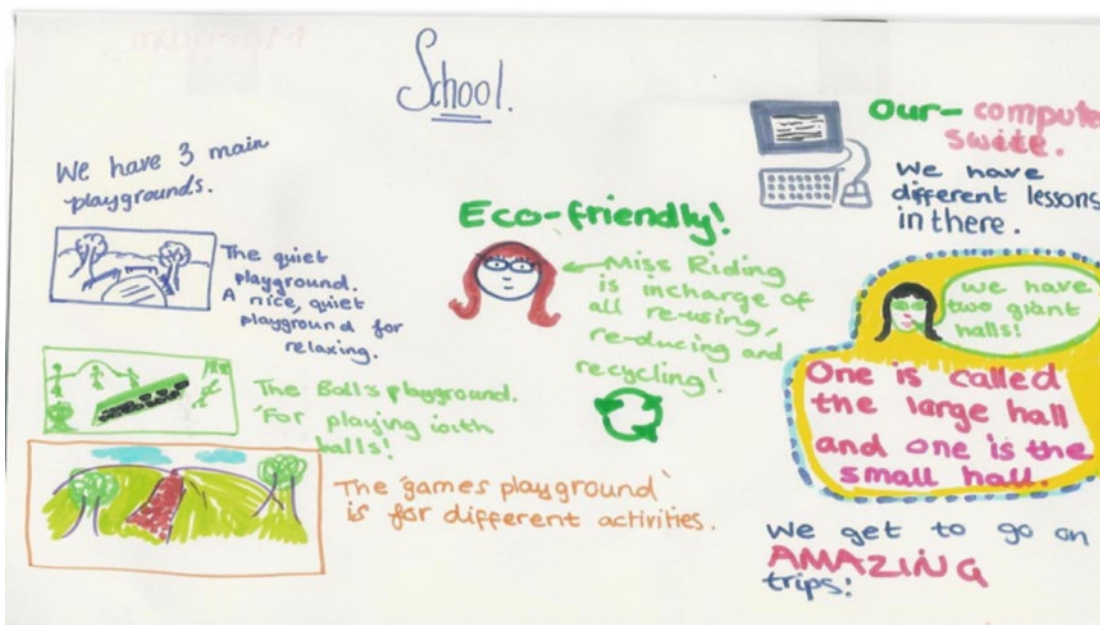 School.
We have 3 main
playgrounds.
The quiet
playground.
A nice, quiet
playground for
relaxing.
The Ball's playground.
'For playing with
balls!
The 'games playground'
is for different activities.
Eco-friendly!
Miss Riding
is incharge of
all re-using,
re-ducing and
recycling!
Our- compute
swite.
We have
different lessons
in there.
we have
two giant
halls!
One is called
the large hall
and one is the
small hall.
We get to go on
AMAZING
trips: